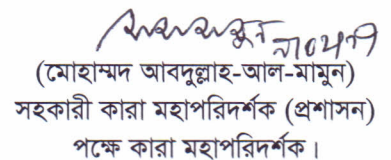 (মোহাম্মদ আবদুল্লাহ-আল-মামুন)
সহকারী কারা মহাপরিদর্শক (প্রশাসন)
পক্ষে কারা মহাপরিদর্শক।